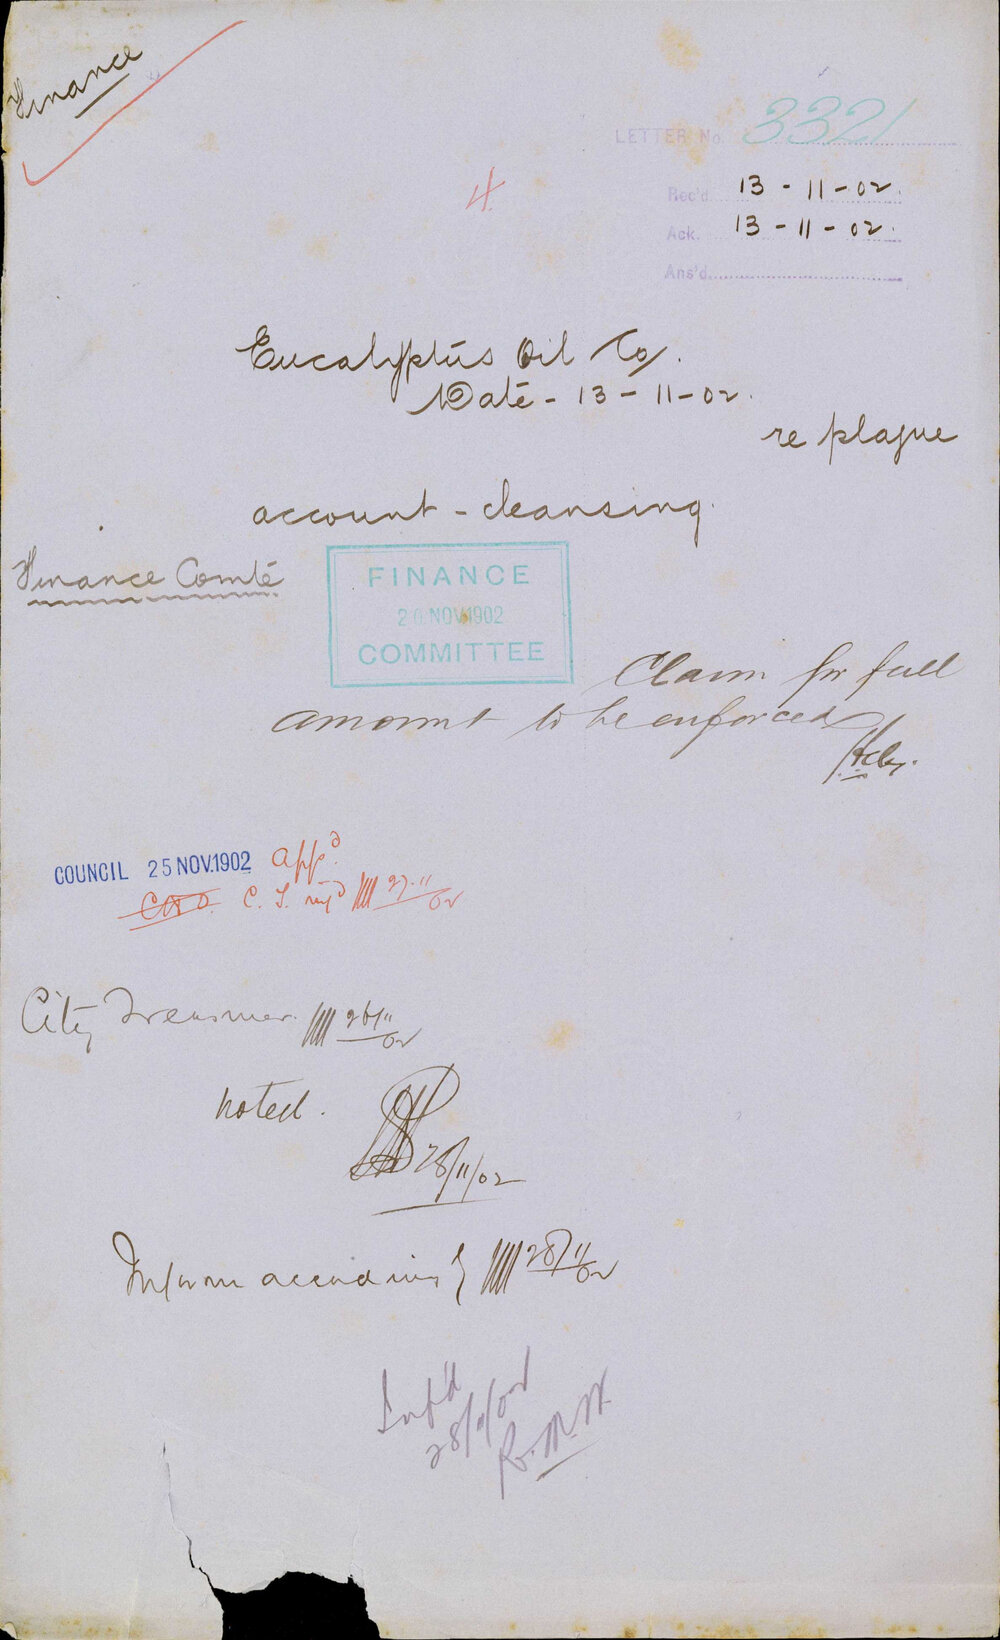 Finance
LETTER No. 3321
4.
Rec'd 13-11-02.
Ack. 13-11-02.
Ans'd
Eucalyptus Oil Co/.
Date - 13-11-02.
re plague
account - cleansing.
Finance Comté
FINANCE
20 NOV 1902
COMMITTEE
Claim for full
amount to be enforced
COUNCIL 25 NOV.1902 appd.
C. T. 27.11/02
City Treasurer. 26/11/02
noted.
28/11/02
Inform accordingly 28/11/02
Inf'd
28/11/02